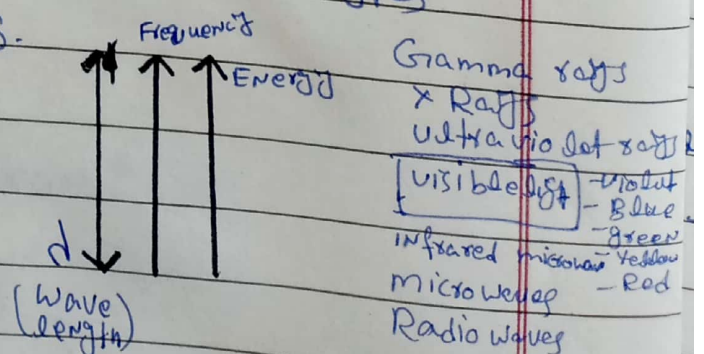 Frequency
Energy
λ
(Wave
length)
Gamma rays
X Rays
Ultra violet rays
visible light - violet
- Blue
- green
Infrared microwav - Yellow
Microwaves - Red
Radio waves